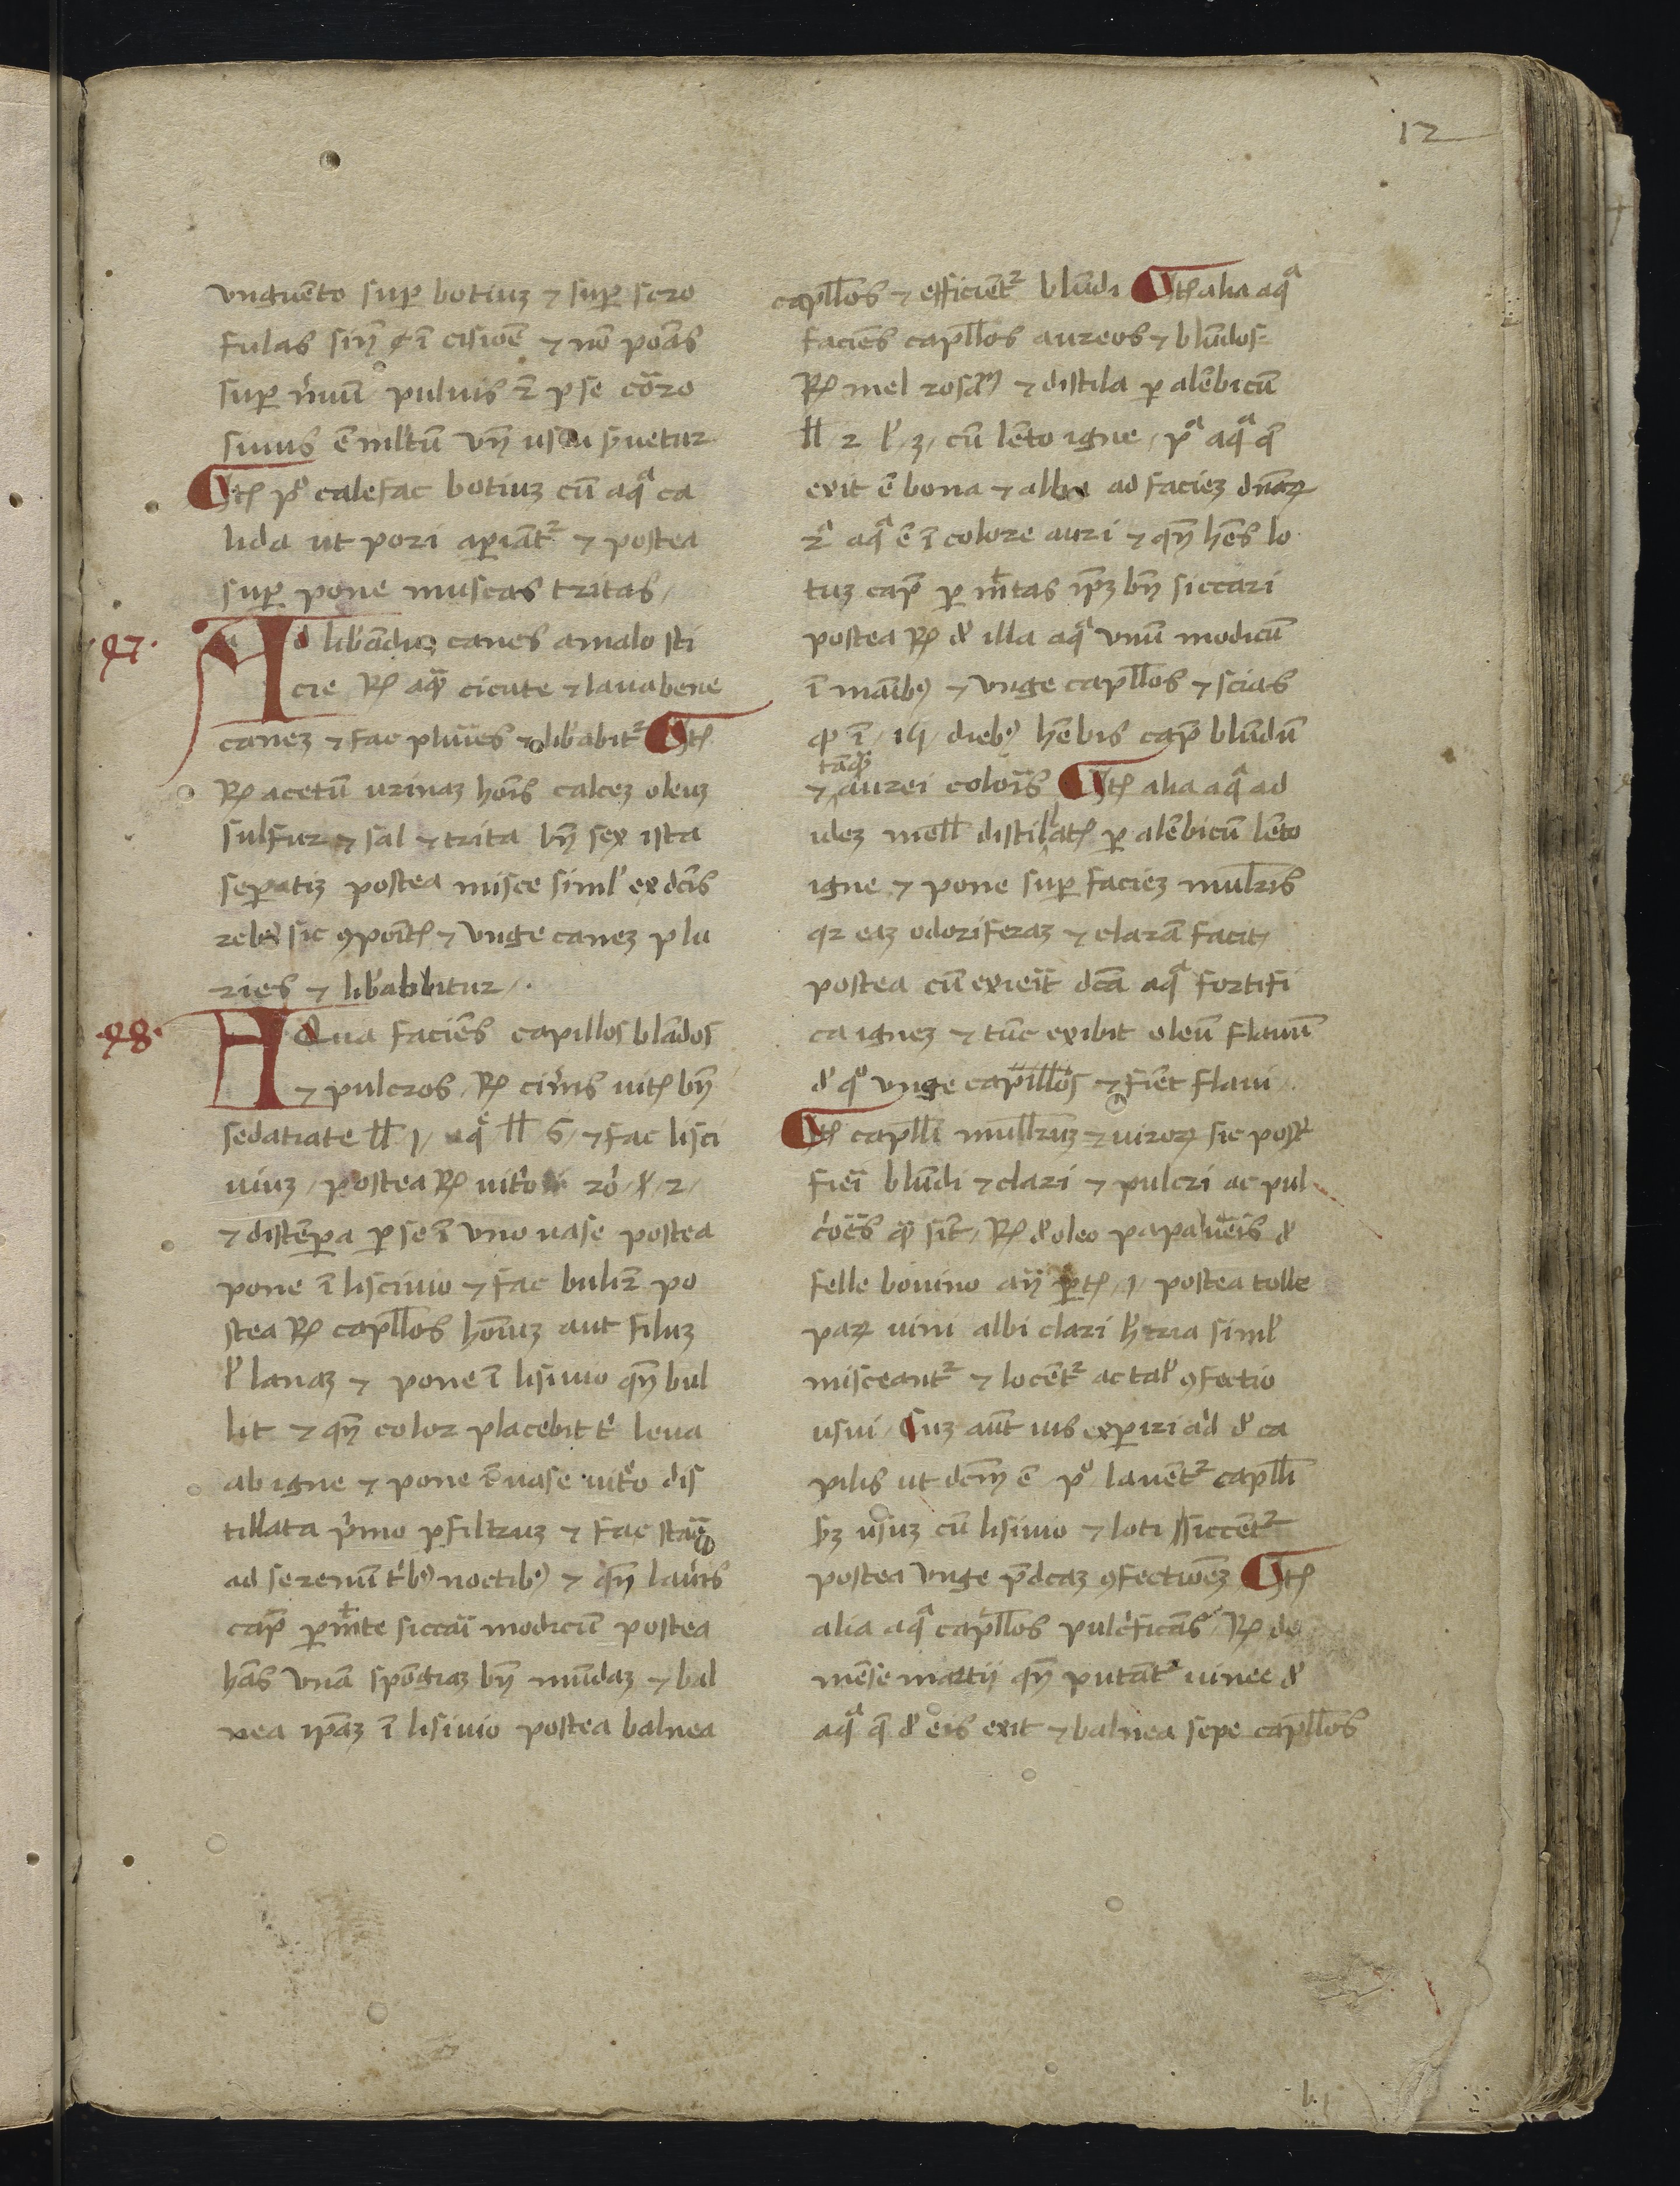 12
vnguēto suꝑ botiuz ⁊ suꝑ scro
fulas sin̄ ī cisiōe ⁊ nō poās
suꝑ pulius ꝑ se cōro
siuus
Itē pͦ calefac botiuz cū aqͣ ca
lida ut pori aꝑiāt² ⁊ postea
suꝑ pone muscas tritas /
·97·
Ad lib'anduꝫ canes a malo sti
cie ℞ aqͣ cicute ⁊ laua bene
canez ⁊ fac pluries ⁊ lib'abit² Itē
℞ acetū urinaz hoīs calcez oleuz
sulfur ⁊ sal ⁊ trita bn̄ sex ista
seꝑatiz postea misce siml' ex dcīs
reb sic ꝯpoīt ⁊ vnge canez plu
ries ⁊ lib'abitur /·
·98·
AQua faciēs capillos blādos
⁊ pulcros / ℞ cin'is uitꝭ bn̄
sedatiate ℔ 1 / aqͤ ℔ 6 / ⁊ fac lisci
uiuz / postea ℞ 2 /
⁊ distēꝑa ꝑ se ī vno uase postea
pone ī lisciuio ⁊ fac bulir̄ po
stea ℞ capll̄os hoīuz aut filuz
l' lanaz ⁊ pone ī lisiuio qn̄ bul
lit ⁊ qn̄ color placebit t' leua
ab igne ⁊ pone ī uase uitͦ dis
tillata p'mo ꝑ filtruz ⁊ fac star̄
ad serenū t'bꝰ noctibꝰ ⁊ qn̄ lau'is
cap̄ ꝑmīte siccar̄i modicū postea
hās vnā spōgiaz bn̄ mūdaz ⁊ bal
nea ip̄az ī lisiuio postea balnea
capll̄os ⁊ efficiēt² blūdi Itē alia aqͣ
faciēs capll̄os aureos ⁊ blūdos
℞ mel rosaꝝ ⁊ distila ꝑ alēbicū
℔ / 2 l' / 3 / cū lēto igne / pͣ aqͣ q̄
exit ē bona ⁊ alba ad faciez dn̄aꝝ
2ͣ aqͣ ē ī colore auri ⁊ qn̄ hēs lo
tuz cap̄ ꝑmītas ip̄z bn̄ siccari
postea ℞ d' illa aqͣ vnū modicū
ī manibꝰ ⁊ vnge capll̄os ⁊ scias
ꝙ ī / 14 / diebꝰ hēbis cap̄ blūdū
tāqͣ
⁊ aurei coloīs Itē alia aqͣ ad
idez mell̄ distillatꝭ ꝑ alēbicū lēto
igne ⁊ pone suꝑ faciez mulr̄is
qr eaz odoriferaz ⁊ clarā facit /
postea cū exieit̄ dcā aqͣ fortifi
ca ignez ⁊ tūc exibit oleū flauū
d' qͦ vnge capillos ⁊ fiēt flaui
Itē capll̄i mull̄ruz ⁊ uiroꝝ sic post
fieī blūdi ⁊ clari ⁊ pulcri ac pul
c'oēs qͣ sīt / ℞ d' oleo papau'eis d'
felle bouino an̄ ꝑtē 1 / postea tolle
paꝝ uini albi clari h' tria siml'
misceant² ⁊ locēt² ac tal' ꝯfectio
usui / Cuz aūt uis exꝑiri ad d' ca
pilis ut dcm̄ ē pͦ lauēt² capll̄i
sz usuz cū lisiuio ⁊ loti siccēt²
postea vnge p̄dcaz ꝯfectiōez Itē
alia aqͣ capll̄os pulc'ficās / ℞ de
mēse martij qn̄ putāt² uinee d'
aqͣ q̄ d' eis exit ⁊ balnea sepe capll̄os
b 1